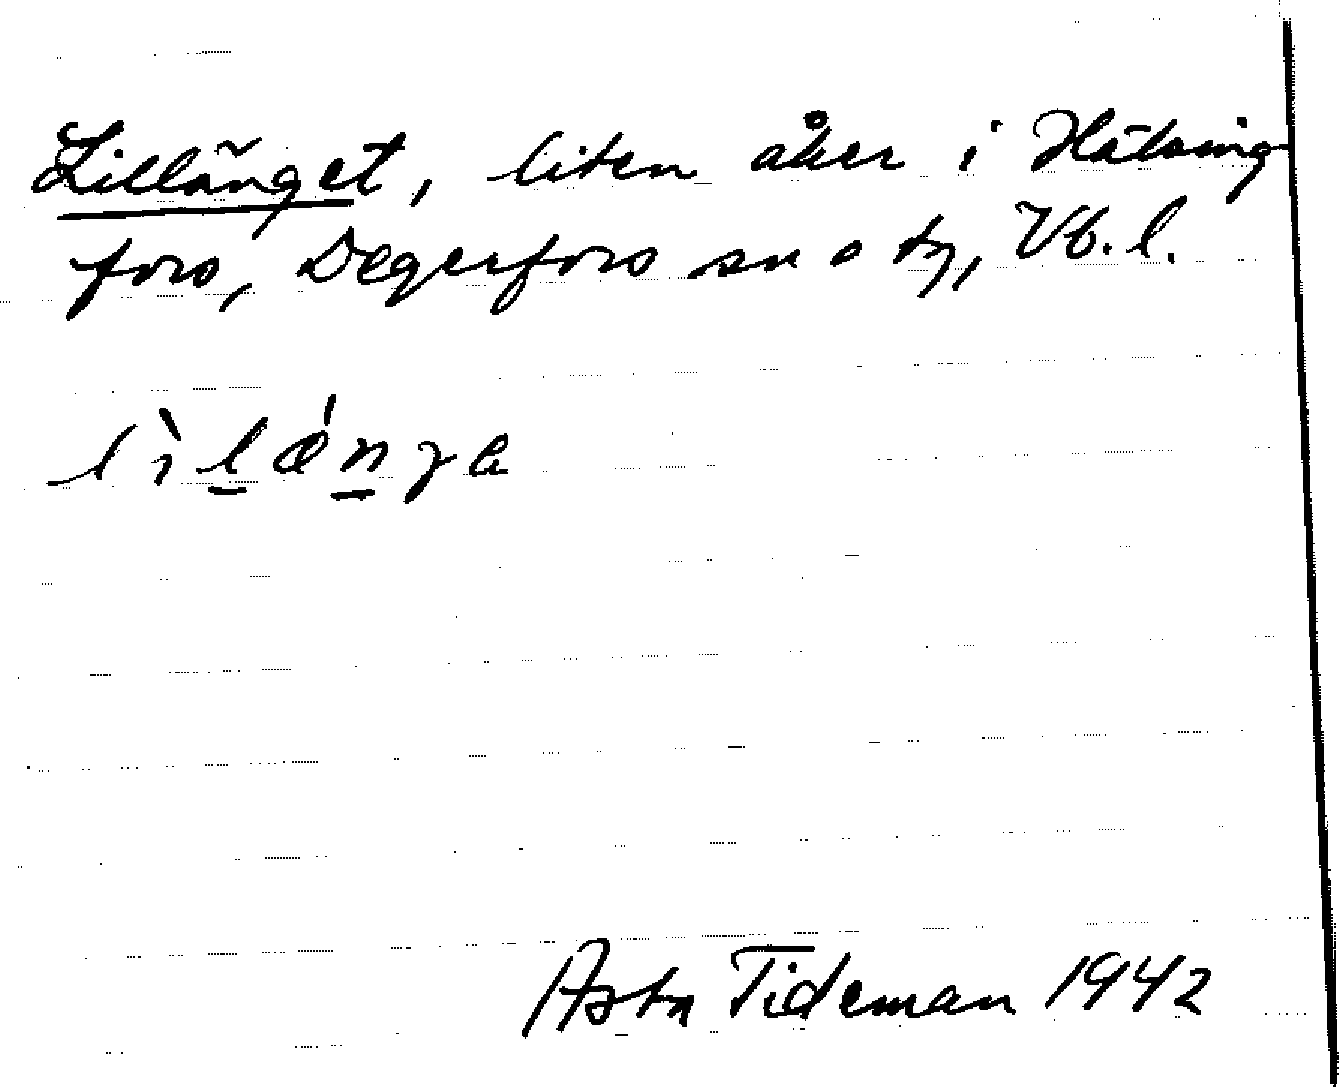 Lillänget, liten åker i Hälsing
fors, Degerfors sn o tg, Vb. l.
Asta Tideman 1942